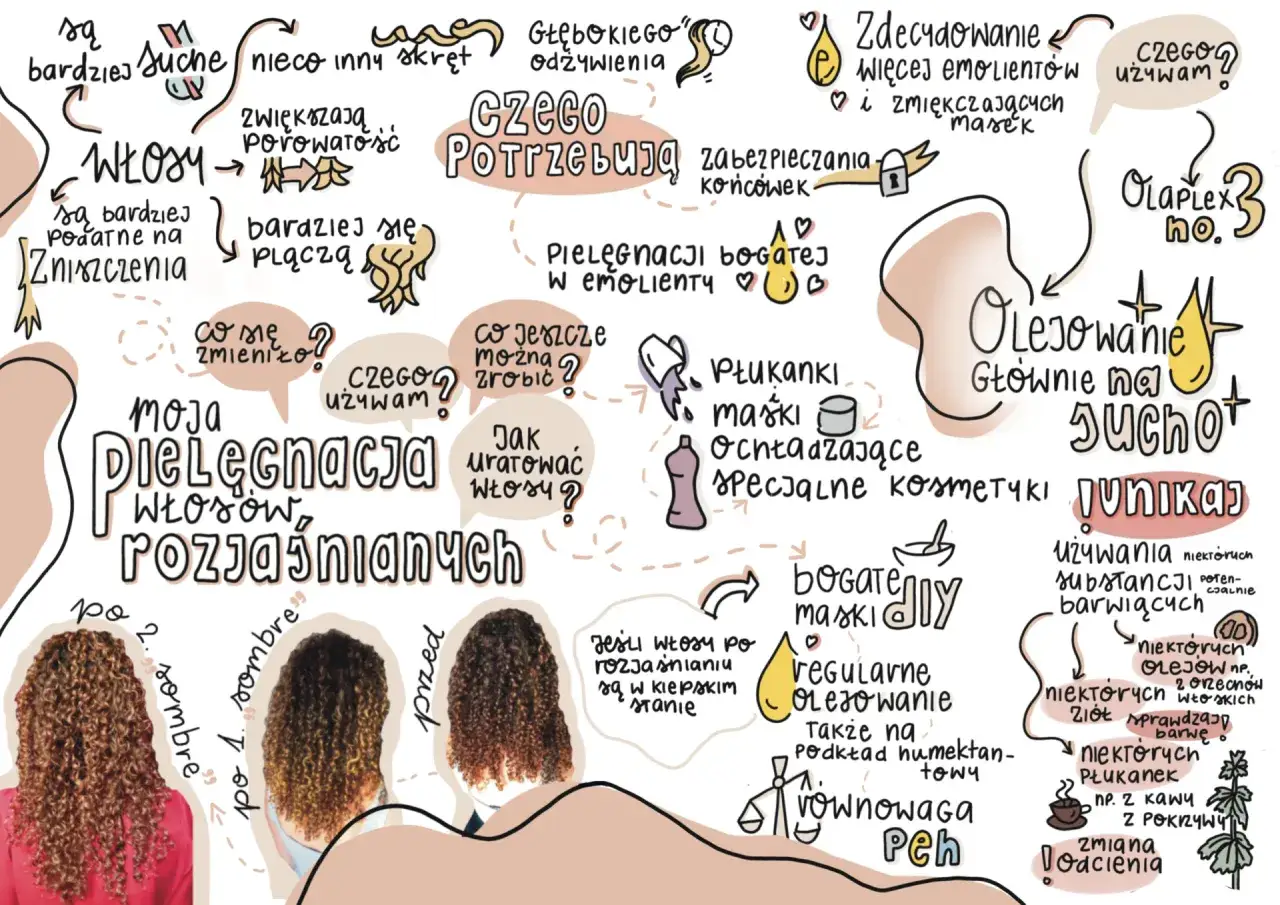 są
bardziej suche
nieco inny skręt
włosy
zwiększają
porowatość
są bardziej
podatne na
zniszczenia
bardziej się
plączą
Głębokiego
odżywienia
czego
potrzebują
zabezpieczania
końcówek
pielęgnacji bogatej
w emolienty
e
Zdecydowanie
więcej emolientów
i zmiękczających
masek
czego
używam?
Olaplex
no. 3
Olejowanie
głównie na
sucho
co się
zmieniło?
czego
używam?
co jeszcze
można
zrobić?
jak
uratować
włosy?
moja
pielęgnacja
włosów
rozjaśnianych
płukanki
i
maski
ochładzające
specjalne kosmetyki
po 2. "sombre"
po 1. "sombre"
przed
jeśli włosy po
rozjaśnianiu
są w kiepskim
stanie
bogate
maski diy
regularne
olejowanie
także na
podkład humektan-
towy
równowaga
peh
!unikaj
używania niektórych
substancji poten-
cjalnie
barwiących
niektórych
olejów np.
z orzechów
włoskich
niektórych
ziół
sprawdzaj
barwę!
niektórych
płukanek
np. z kawy
z pokrzywy
!zmiana
odcienia